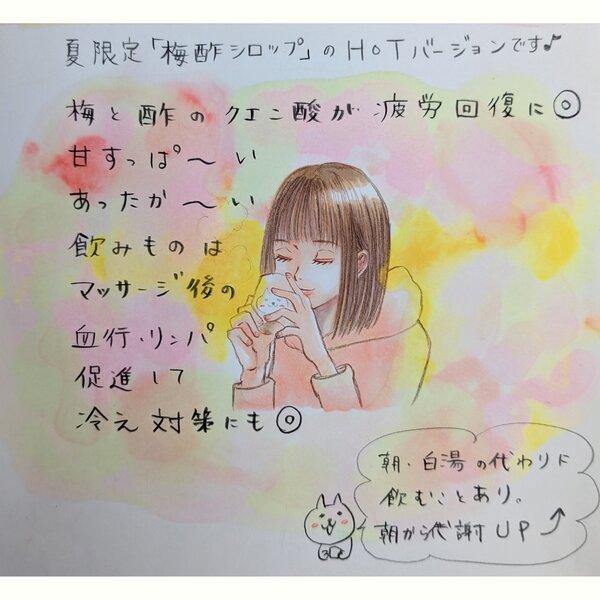 夏限定「梅酢シロップ」のHOTバージョンです♪
梅と酢のクエン酸が疲労回復に◎
甘すっぱ〜い
あったか〜い
飲みものは
マッサージ後の
血行・リンパ
促進して
冷え対策にも◎
朝・白湯の代わりに
飲むことあり。
朝から代謝UP⤴